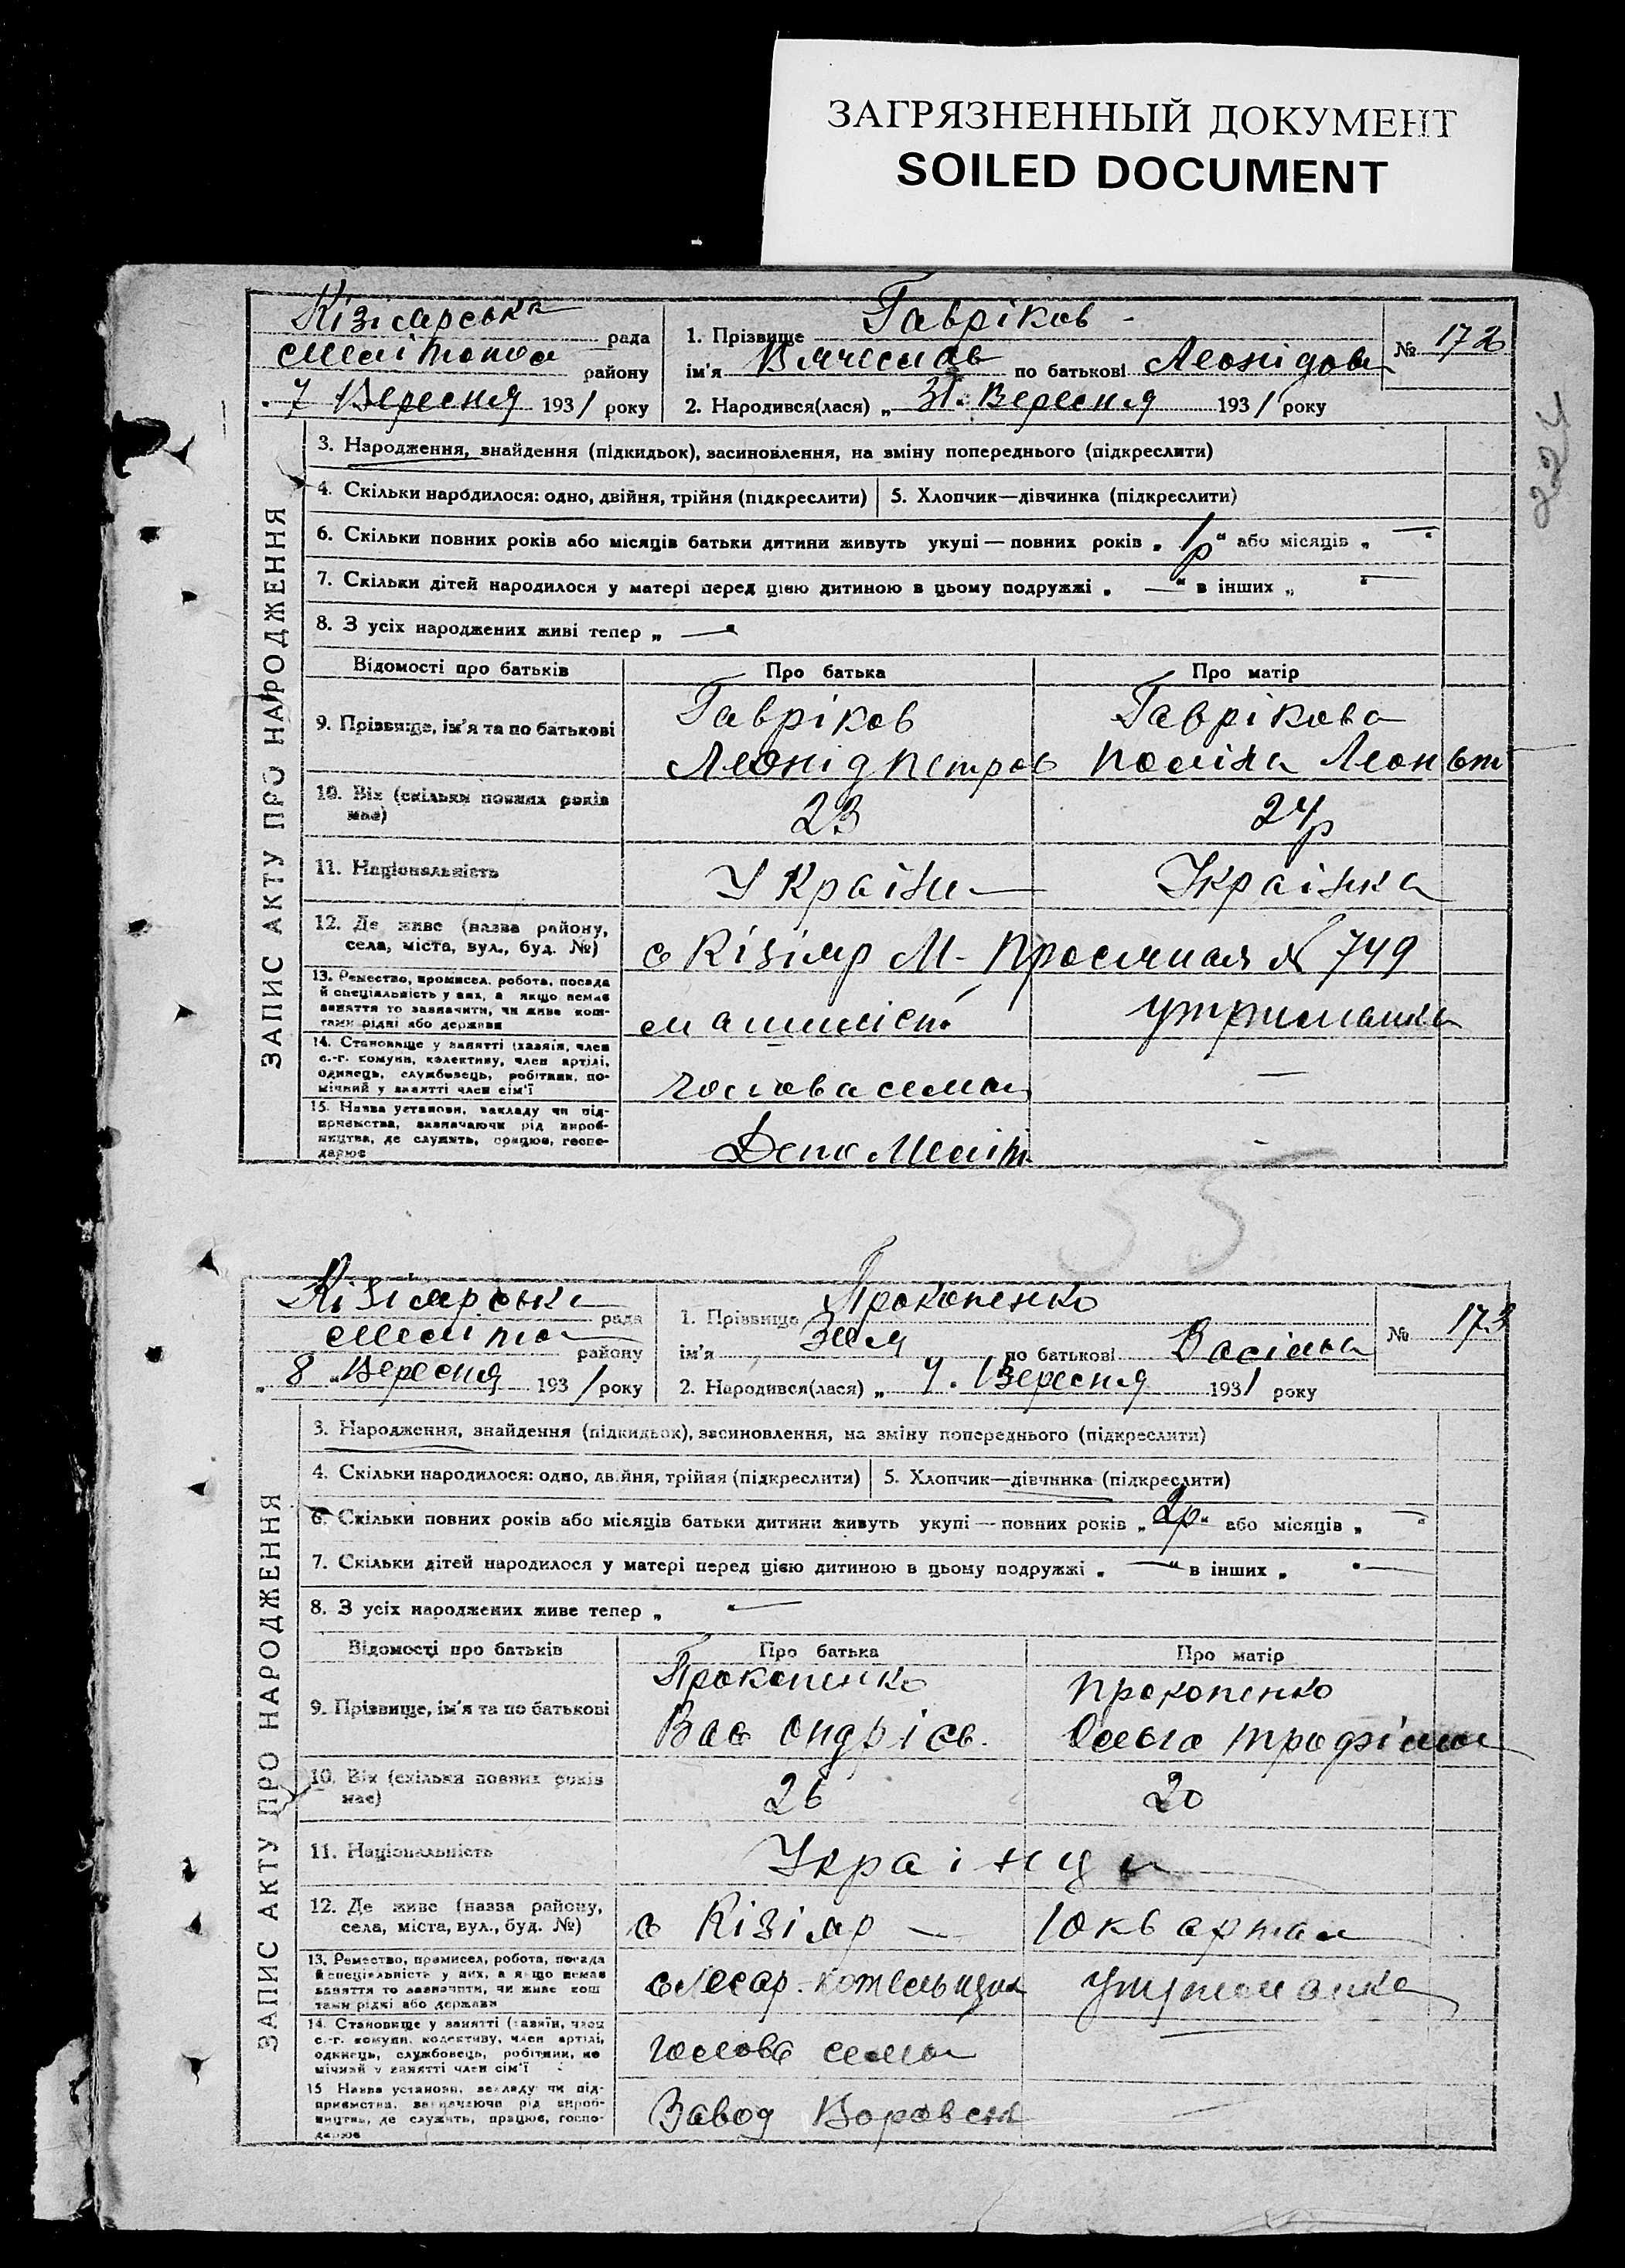 ЗАГРЯЗНЕННЫЙ ДОКУМЕНТ
SOILED DOCUMENT
224
ЗАПИС АКТУ ПРО НАРОДЖЕННЯ
Кізіярська рада
Меліtопол району
„7 Вересня 1931 року
1. Прізвище Гавріков
ім'я Вячеслав по батькові Леонідов
№ 172
2. Народився(лася) „ 31. Вересня 1931 року
3. Народження, знайдення (підкидьок), засиновлення, на зміну попереднього (підкреслити)
4. Скільки народилося: одно, двійня, трійня (підкреслити) 5. Хлопчик—дівчинка (підкреслити)
6. Скільки повних років або місяців батьки дитини живуть укупі — повних років „ 1р “ або місяців „ — “
7. Скільки дітей народилося у матері перед цією дитиною в цьому подружжі „ — “ в інших „ — “
8. З усіх народжених живі тепер „ — “
Відомості про батьків Про батька Про матір
9. Прізвище, ім'я та по батькові Гавріков Гаврікова
Леонід Петров Поліна Леоньт
10. Вік (скільки повних років має) 23 24р
11. Національність Україн— Українка
12. Де живе (назва району, села, міста, вул., буд. №) с Кізіяр М- Просяная № 749
13. Ремество, промисел, робота, посада й спеціальність у них, а якщо немає заняття то зазначити, чи живе коштами рідні або держави машиніст утриманка
14. Становище у занятті (хазяїн, член с.-г. комуни, колективу, член артілі, одинець, службовець, робітник, помічний у занятті член сім'ї голова семьи —
15. Назва установи, закладу чи підприємства, зазначаючи рід виробництва, де служить, працює, господарює Депо Меліт. —
55
ЗАПИС АКТУ ПРО НАРОДЖЕННЯ
Кізіярська рада
Меліто— району
„ 8 “ Вересня 1931 року
1. Прізвище Прокопенко
ім'я по батькові Васільв
№ 173
2. Народився(лася) „ 4. Вересня 1931 року
3. Народження, знайдення (підкидьок), засиновлення, на зміну попереднього (підкреслити)
4. Скільки народилося: одно, двійня, трійня (підкреслити) 5. Хлопчик—дівчинка (підкреслити)
6. Скільки повних років або місяців батьки дитини живуть укупі — повних років „ 2р “ або місяців „ — “
7. Скільки дітей народилося у матері перед цією дитиною в цьому подружжі „ — “ в інших „ — “
8. З усіх народжених живе тепер „ — “
Відомості про батьків Про батька Про матір
9. Прізвище, ім'я та по батькові Прокопенко Прокопенко
Вас Ондрієв. Ольга Трофім
10. Вік (скільки повних років має) 26 20
11. Національність Українці
12. Де живе (назва району, села, міста, вул., буд. №) с Кізіяр — 10 квартал
13. Ремество, промисел, робота, посада й спеціальність у них, а якщо немає заняття то зазначити, чи живе коштами рідні або держави слесар-котельщик утриманка
14. Становище у занятті (хазяїн, член с.-г. комуни, колективу, член артілі, одинець, службовець, робітник, помічний у занятті член сім'ї голова семьи —
15 Назва установи, закладу чи підприємства, зазначаючи рід виробництва, де служить, працює, господарює Завод Воровск —